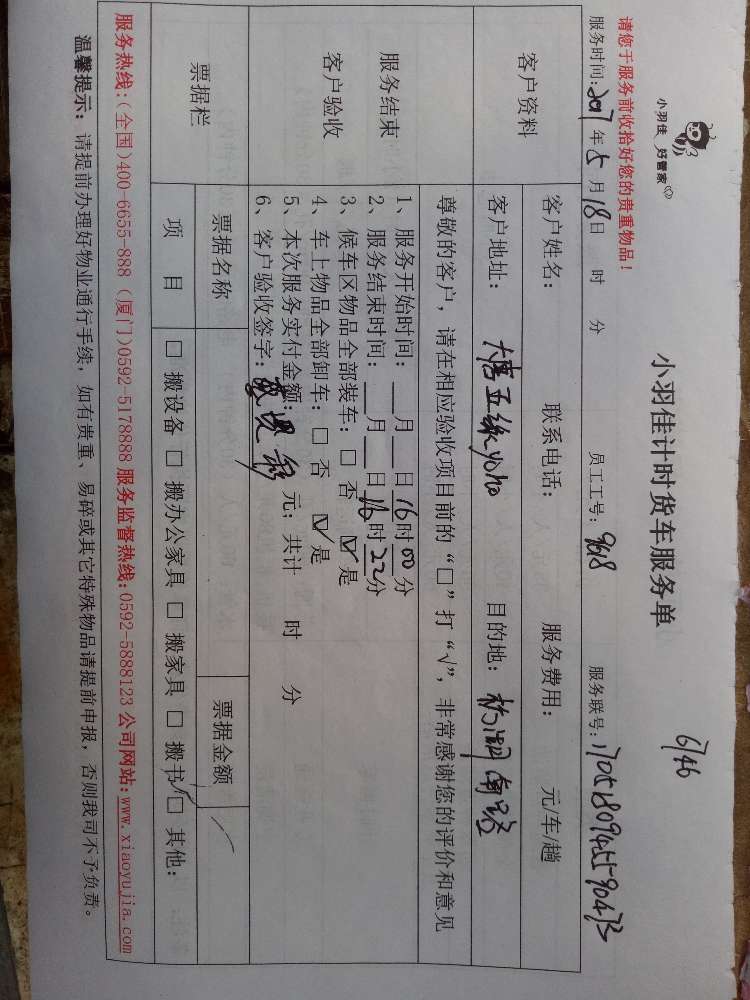 小羽佳 好管家
小羽佳计时货车服务单
6146
请您于服务前收拾好您的贵重物品！
服务时间：2017年5月18日 时 分 员工工号：9618 服务联号：
客户资料
客户姓名： 联系电话： 服务费用： 元/车/趟
客户地址： yoho 目的地：
尊敬的客户，请在相应验收项目前的“□”打“√”，非常感谢您的评价和意见
服务结束
客户验收
1、服务开始时间：__月__日16时00分
2、服务结束时间：__月__日16时22分
3、候车区物品全部装车：□ 否 ☑ 是
4、车上物品全部卸车：□ 否 ☑ 是
5、本次服务实付金额： 元；共计 时 分
6、客户验收签字：
票据栏
票据名称 票据金额
项 目 □ 搬设备 □ 搬办公家具 □ 搬家具 □ 搬书 □ 其他：
服务热线：(全国)400-6655-888 (厦门)0592-5178888 服务监督热线:0592-5888123 公司网站:www.xiaoyujia.com
温馨提示：请提前办理好物业通行手续，如有贵重、易碎或其它特殊物品请提前申报，否则我司不予负责。